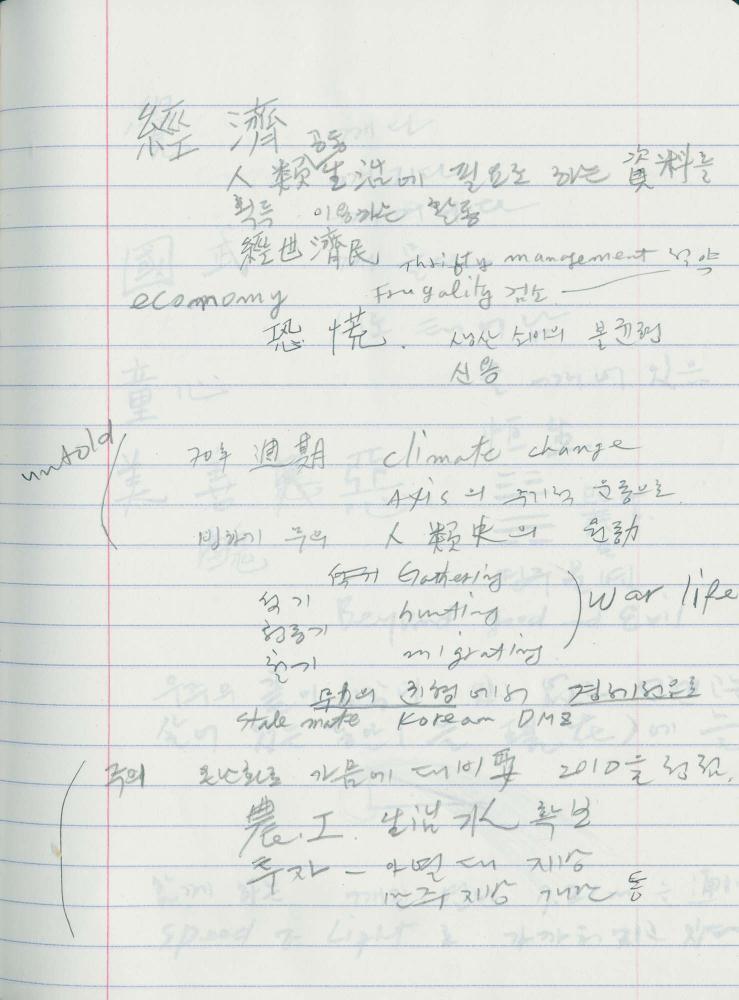 經 濟
공동
人類生活에 필요로 하는 資料를
획득 이용하는 활동
經世濟民 Thrifty management 절약
economy Frugality 검소
恐慌. 생산 소비의 불균형
신용
untold
70年 週期 climate change
Axis의 주기적 운동으로
빙하기 무의 人類史의 원동
Gathering
석기 hunting
청동기 war life
철기 migrating
무력의 균형에서 경제전으로
Stale mate Korean DMZ
주의 온난화로 가뭄에 대비 要 2010을
農.工. 生活 확보
투자 - 아떨 대 지상
만주 지상 통